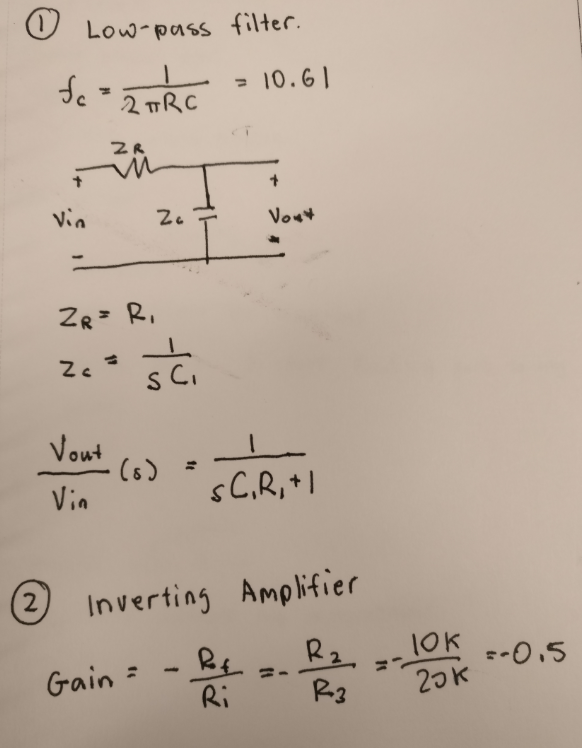 ① Low-pass filter.
fc = 1 / 2πRC = 10.61
ZR
+ +
Vin Zc Vout
- -
ZR = R1
Zc = 1 / sC1
Vout / Vin (s) = 1 / sC1R1+1
② Inverting Amplifier
Gain = - Rf / Ri = - R2 / R3 = - 10K / 20K = -0.5